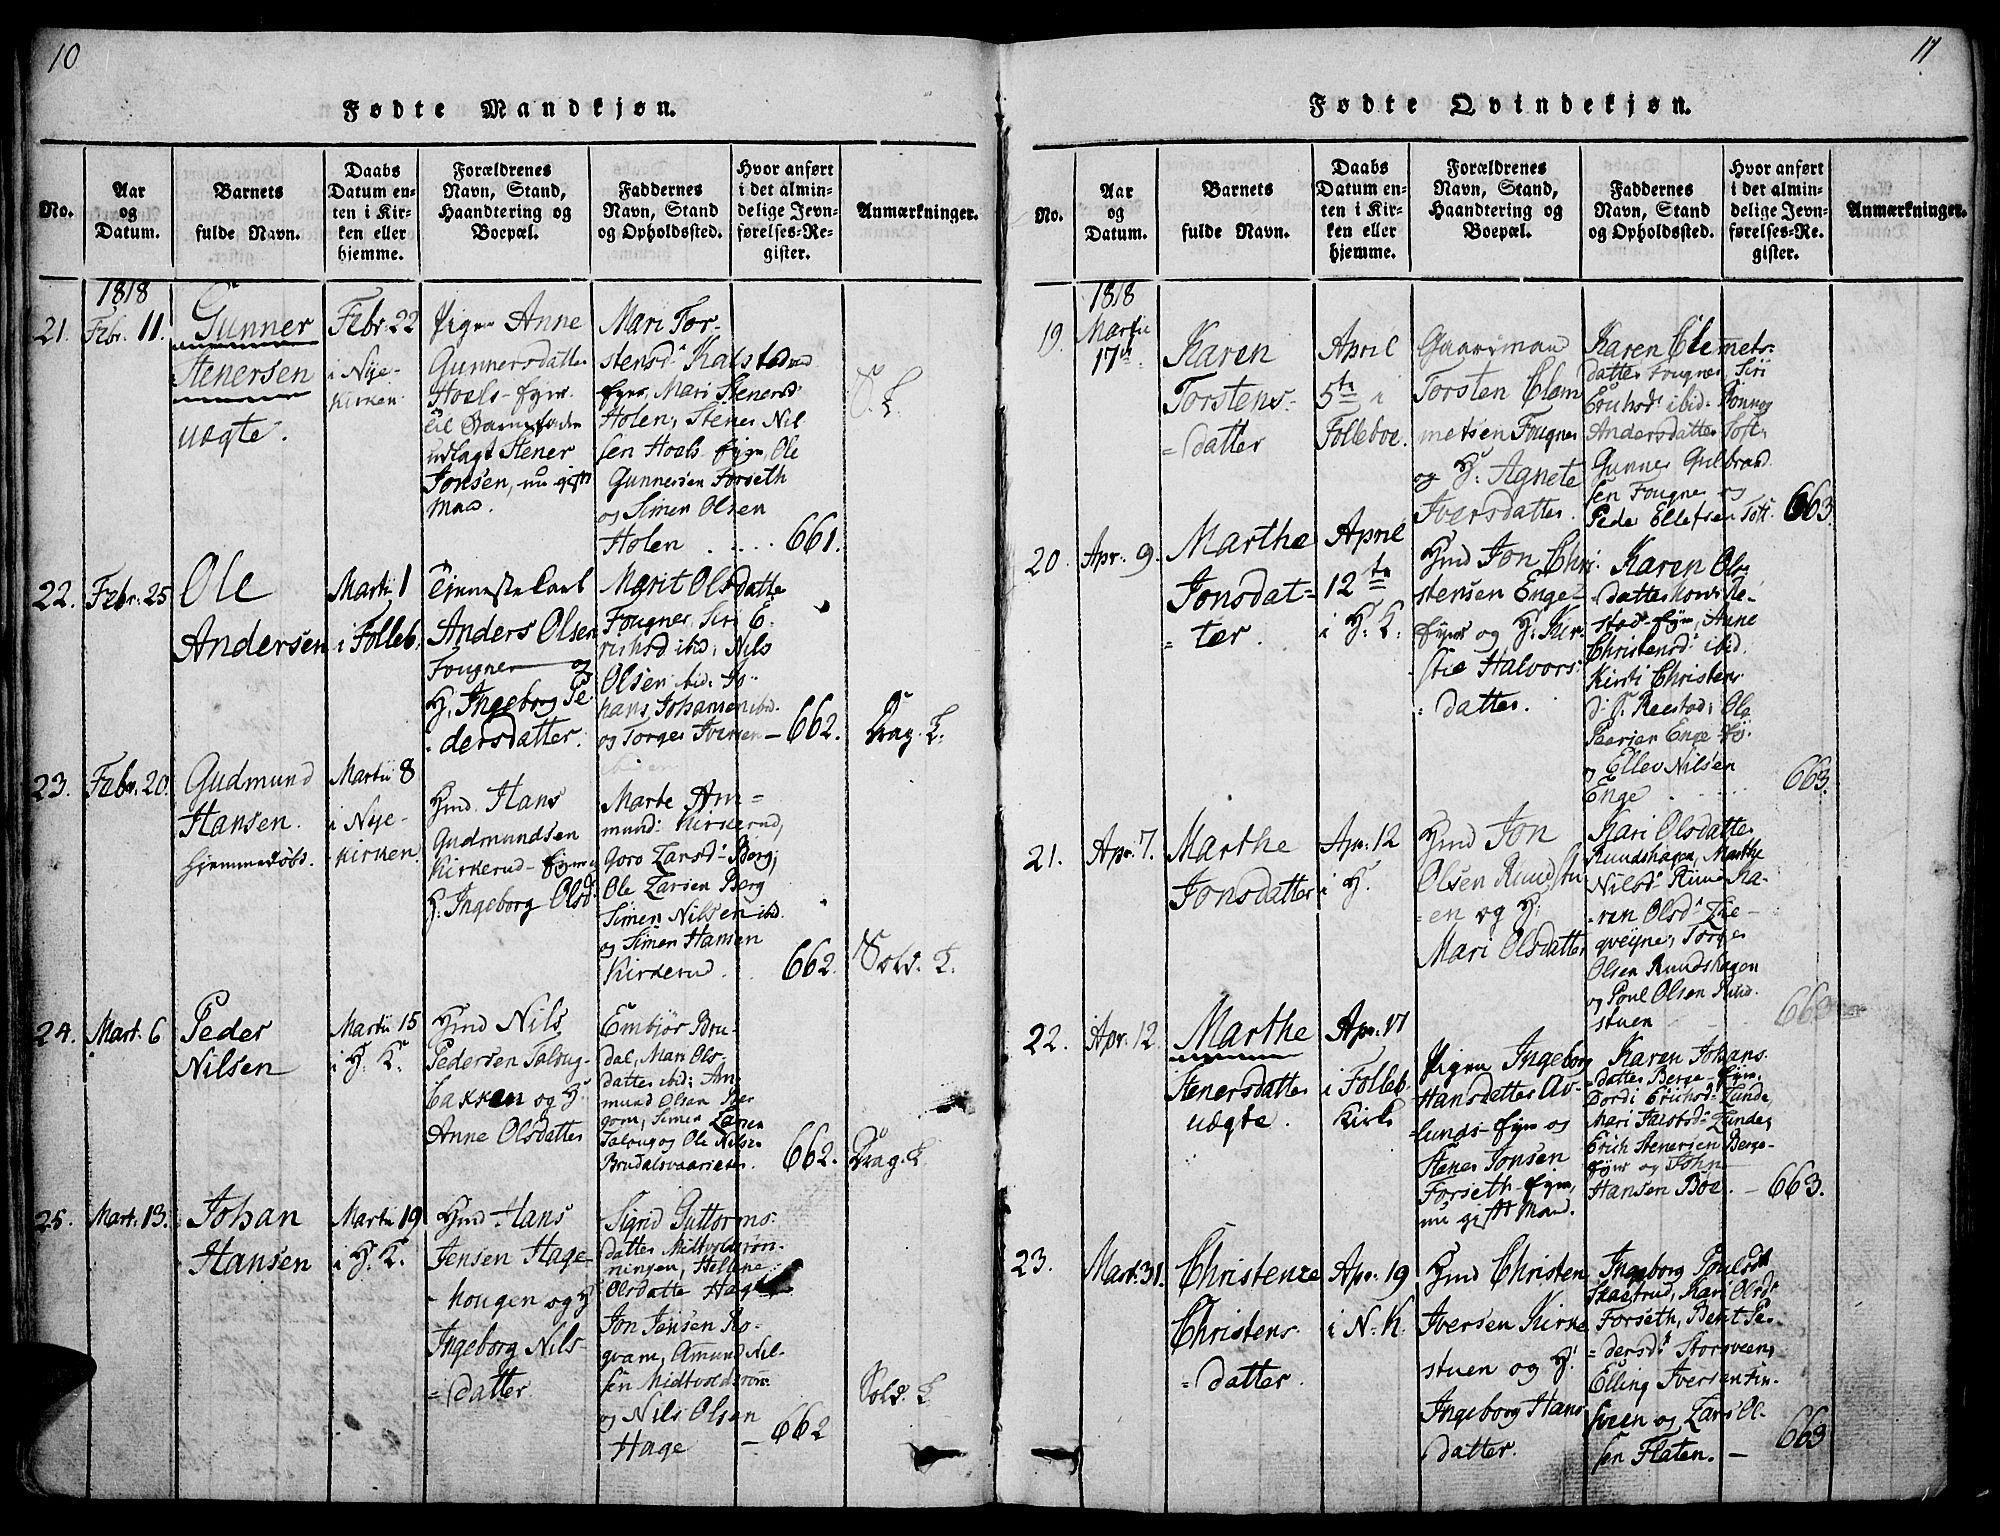 10
Fødte Mandkjøn.
No.
Aar
og
Datum.
Barnets
fulde Navn.
Daabs
Datum en-
ten i Kir-
ken eller
hjemme.
Forældrenes
Navn, Stand,
Haandtering og
Boepæl.
Faddernes
Navn, Stand
og Opholdssted.
Hvor anført
i det almin-
delige Jevn-
førelses-Re-
gister.
Anmærkninger.
1818
21.
Febr. 11.
Gunner
Stenersen
uægte.
Febr. 22
i Nye-
Kirken
Pigen Anne
Gunnersdatter
Hoels-
til Barnefader
udlagt Stener
Jonsen, nu gift
Mand.
Mari Tor-
stensd:
Mari Stenersd
Holen, Stener Nil
sen Hoels Ole
Gunnersen Forseth
og Simen Olsen
Holen . . . .
661.
S. L
22.
Febr. 25
Ole
Andersen
Martii 1
i Folleb.
Tjenestekarl
Anders Olsen
Fougner og
H. Ingeborg Pe
dersdatter.
Marit Olsdatter
Fougner, Siri E.
richsd ibid: Nils
Olsen ibid: Jo-
hans Johansen ibid.
og Torger Iversen
662.
Drag. L.
23.
Febr. 20.
Gudmund
Hansen.
hjemmedøbt.
Martii 8
i Nye-
kirken
Hmd. Hans
Gudmundsen
Kirkerud
H: Ingeborg Olsd
Marte Am=
mund: Kirkerud,
Goro Larsd: Berg,
Ole Larsen Berg
Simen Nilsen ibd.
og Simen Hansen
Kirkerud
662.
Sold. L.
24.
Mart. 6
Peder
Nilsen
Martii 15
i H. K.
Hmd Nils
Pedersen
bakken og H:
Anne Olsdatter
Embjør Bru-
dal, Mari Ols-
datter ibid: Am-
mund Olsen
Simen Larsen
og Ole Nilsen
662.
Drag. L.
25.
Mart. 13.
Johan
Hansen
Martii 19
i H. K.
Hmd Hans
Jensen Hage-
hougen og H
Ingeborg Nils-
=datter
Sigrid Guttorms-
datter Midtvoldsrøn-
ningen, Hellene
Olsdatter Hage
Jon Jensen Ro-
qvam, Amund Nil-
sen Midtvoldsrøn
og Nils Olsen
Hage –
662
Sold. L
11
Fødte Qvindekjøn.
No.
Aar
og
Datum.
Barnets
fulde Navn.
Daabs
Datum en-
ten i Kir-
ken eller
hjemme.
Forældrenes
Navn, Stand,
Haandtering og
Boepæl.
Faddernes
Navn, Stand
og Opholdssted.
Hvor anført
i det almin-
delige Jevn-
førelses-Re-
gister.
Anmærkninger.
1818
19.
Martii
17de
Karen
Torstens-
=datter
April
5te i
Folleboe.
Gaardmand
Torsten Clem
metsen Fougner
og H: Agnete
Iversdatter.
Karen Clemets-
datter Fougner, Siri
Erichsd: ibid: Ronnog
Andersdatter Toft,
Gunner Gulbrand
sen Fougner og
Peder Ellefsen Toft.
663.
20.
Apr. 9.
Marthe
Jonsdat=
=ter.
April
12te
i H. K.
Hmd Jon Chri
stensen Enge-
og H: Kir-
stie Halvors-
datter.
Karen Ols-
datter
Anne
Christensd: ibid.
Kirsti Christens
Ole
Enge
og Ellev Nilsen
Enge
663.
21.
Apr. 7.
Marthe
Jonsdatter
Apr. 12
i H.
Hmd Jon
Olsen Ruudstu
=en og H:
Mari Olsdatter
Mari Olsdatter
Ruudshagen, Marthe
Nilsd: Ruud Ka-
ren Olsd:
Torger
Olsen Ruudshagen
og Poul Olsen Ruud
stuen
663
22.
Apr. 12.
Marthe
Stenersdatter
uægte.
Apr. 17
i Folleb.
Kirke
Pigen Ingeborg
Hansdatter Av-
lunds- og
Stener Jonsen
Forseth-
nu gift Mand.
Karen Johans-
=datter Berge
Dordi Erichsd: Lunde
Mari Lunde,
Erich Stenersen Berge-
og John
Hansen Boe. –
663.
23.
Mart. 31.
Christenze
Christens-
=datter.
Apr. 19
i N. K.
Hmd Christen
Iversen Kirke
stuen og H:
Ingeborg Hans
datter.
Ingeborg Poulsd:
Kari Olsd:
Forseth, Berit Pe-
=dersd: Storsveen,
Elling Iversen
sveen og Lars Ol-
sen Flaten. –
663